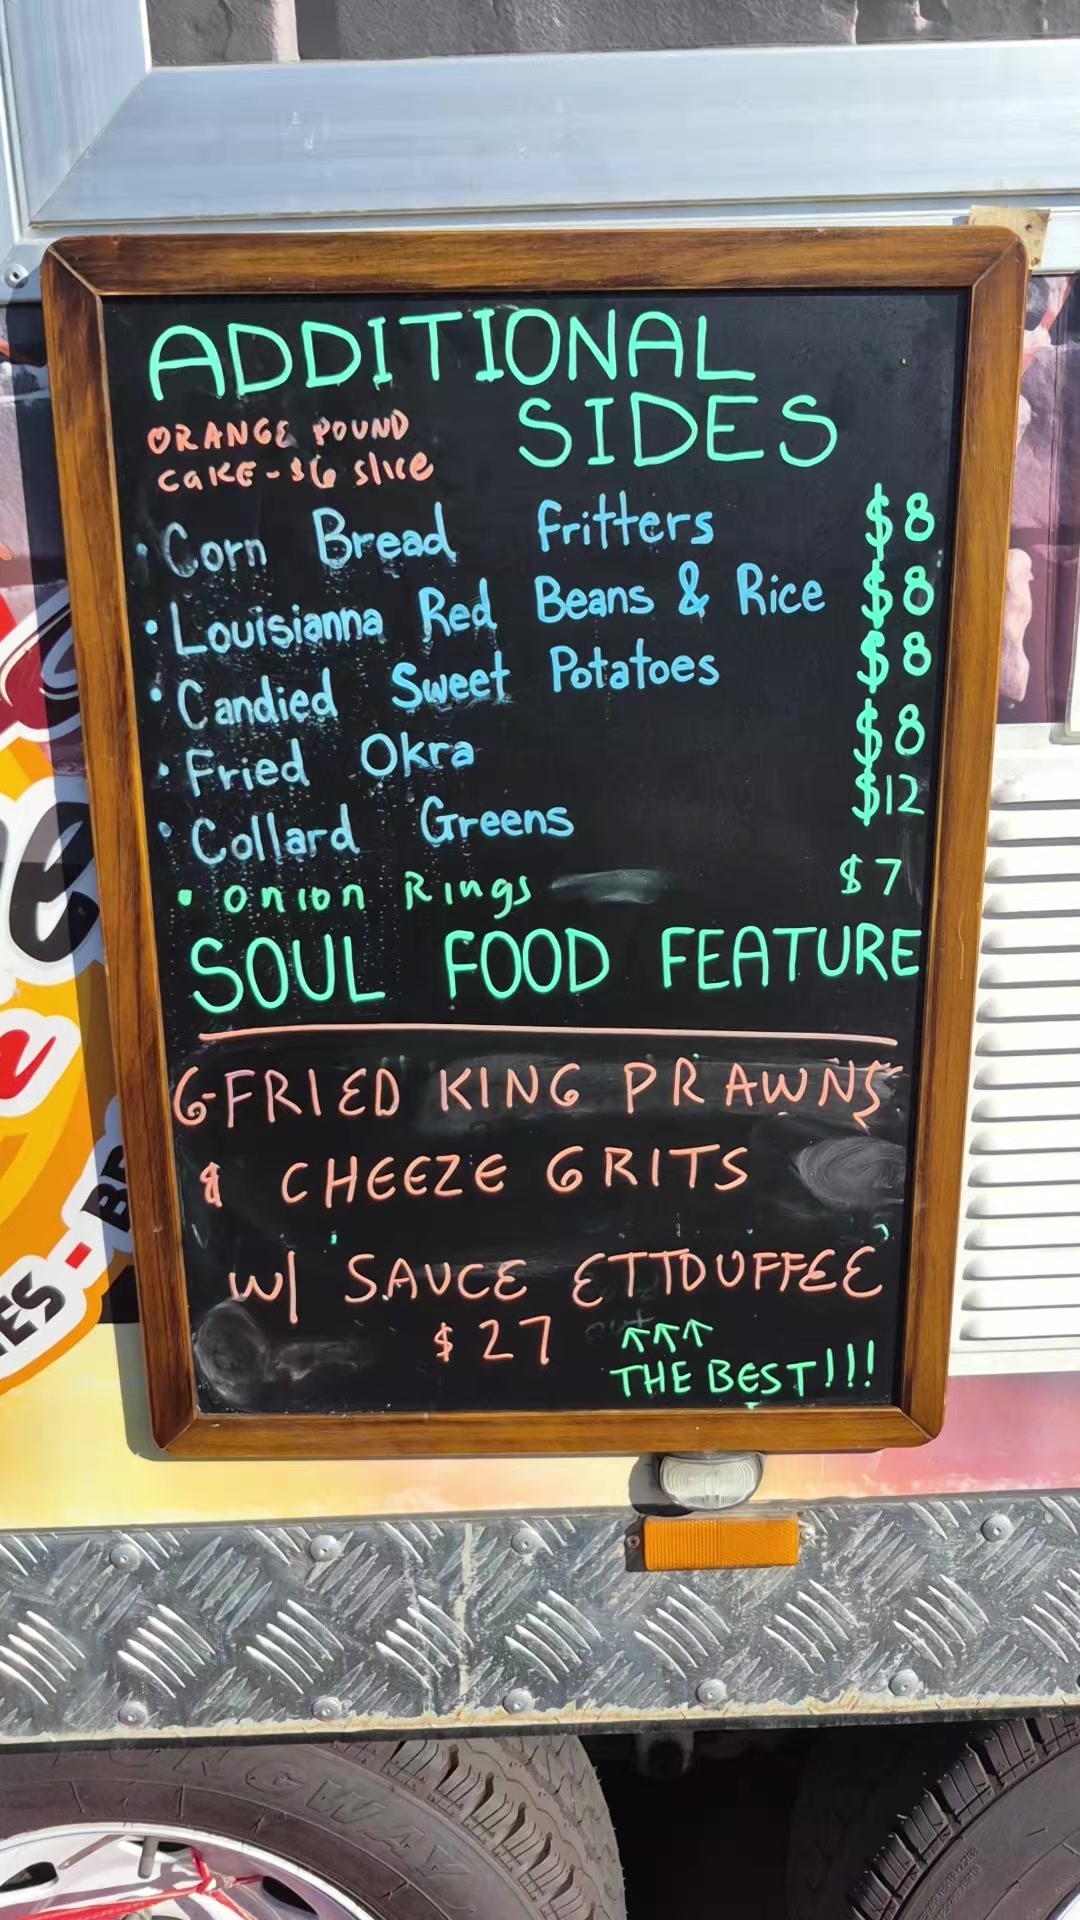 ADDITIONAL
SIDES
ORANGE POUND
CAKE - $6 slice
• Corn Bread Fritters $8
• Louisianna Red Beans & Rice $8
• Candied Sweet Potatoes $8
• Fried Okra $8
• Collard Greens $12
• Onion Rings $7
SOUL FOOD FEATURE
6-FRIED KING PRAWNS
& CHEEZE GRITS
W/ SAUCE ETTOUFFEE
$27 ↑↑↑
THE BEST!!!